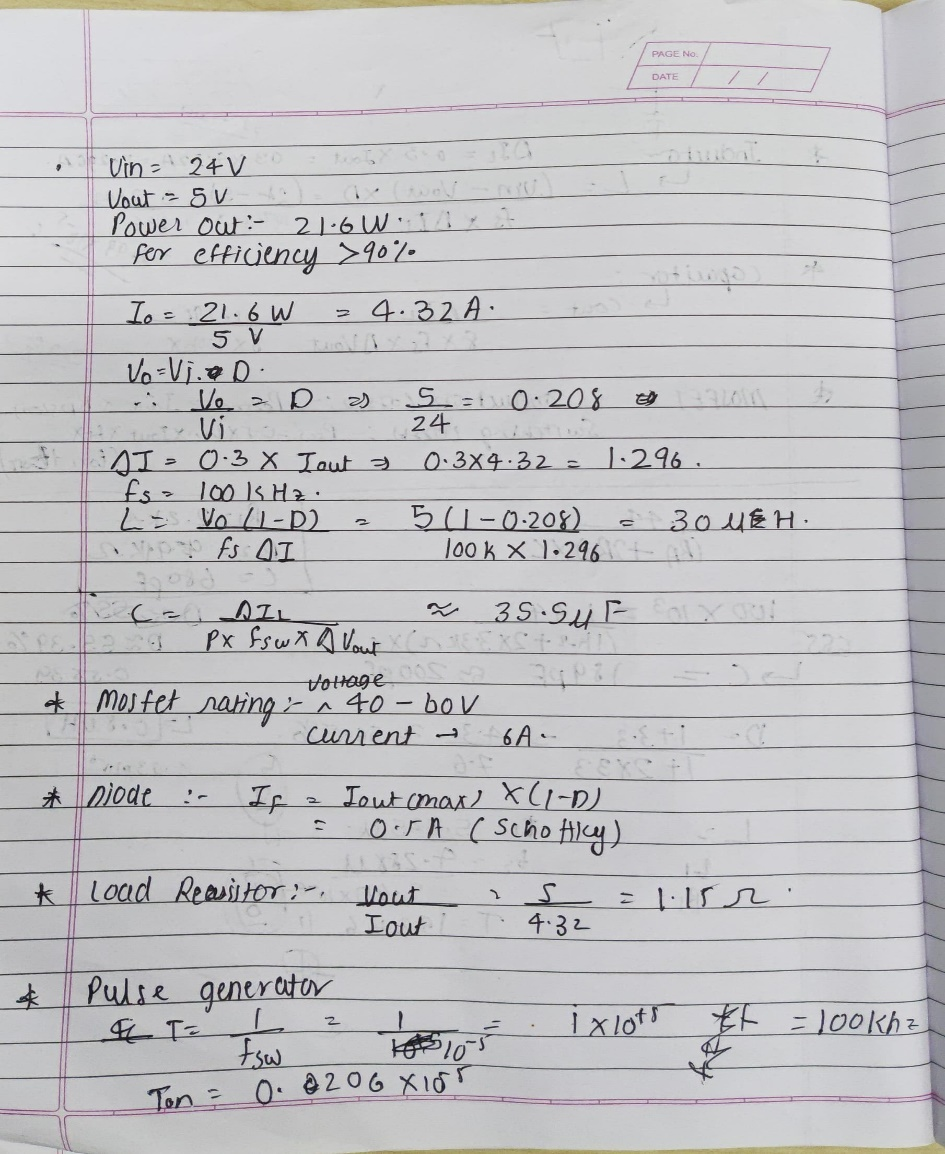 PAGE No.
DATE / /
Vin = 24V
Vout = 5V
Power out:- 21.6 W.
for efficiency >90%
Io = 21.6 W / 5 V = 4.32 A.
Vo = Vi. D.
∴ Vo / Vi = D ⇒ 5 / 24 = 0.208
ΔI = 0.3 X Iout ⇒ 0.3X4.32 = 1.296.
fs = 100 KHz.
L = Vo (1-D) / fs ΔI = 5(1-0.208) / 100k X 1.296 = 30 μH.
C = ΔIL / 8x fsw x Δ Vout ≈ 35.5μF
* Mosfet rating:- voltage 40 - 60V
current → 6A.
* Diode :- IF = Iout (max) X (1-D)
= 0.5A (Schottky)
* Load Resistor:- Vout / Iout = 5 / 4.32 = 1.15 Ω
* Pulse generator
T = 1 / fsw = 1 / 10^-5 = 1 x 10^+5 = 100Khz
Ton = 0.206 X 10^5